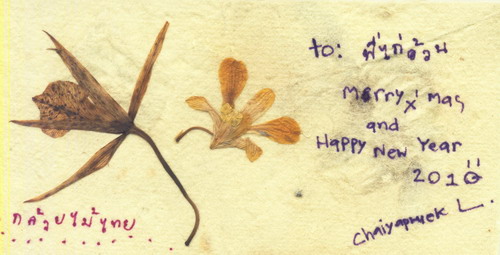 to: พี่ไก่อ้วน
Merry X'mas
and
Happy New Year
2010
Chaiyapruek L.
กล้วยไม้ไทย